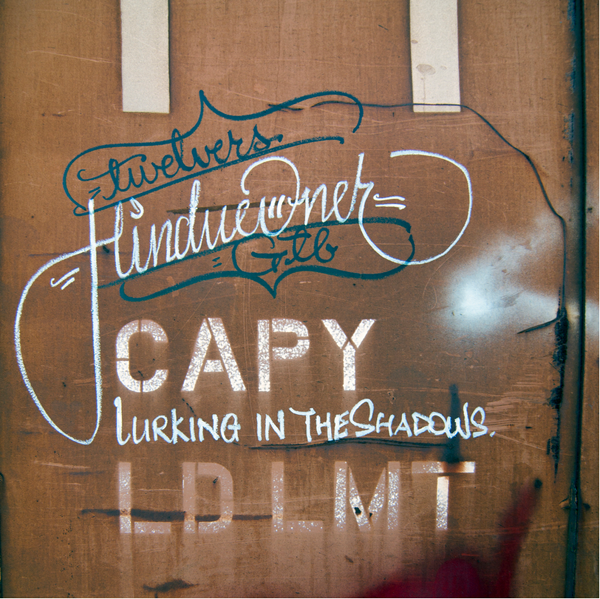 twelvers
Hindue Oner
Gtb
CAPY
LURKING IN THE SHADOWS.
LD LMT